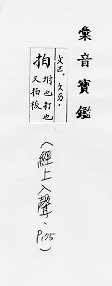 彙音寶鑑
文艺．文乃．
拍 搢也打也
又拍板
（經上入聲．
P.175）